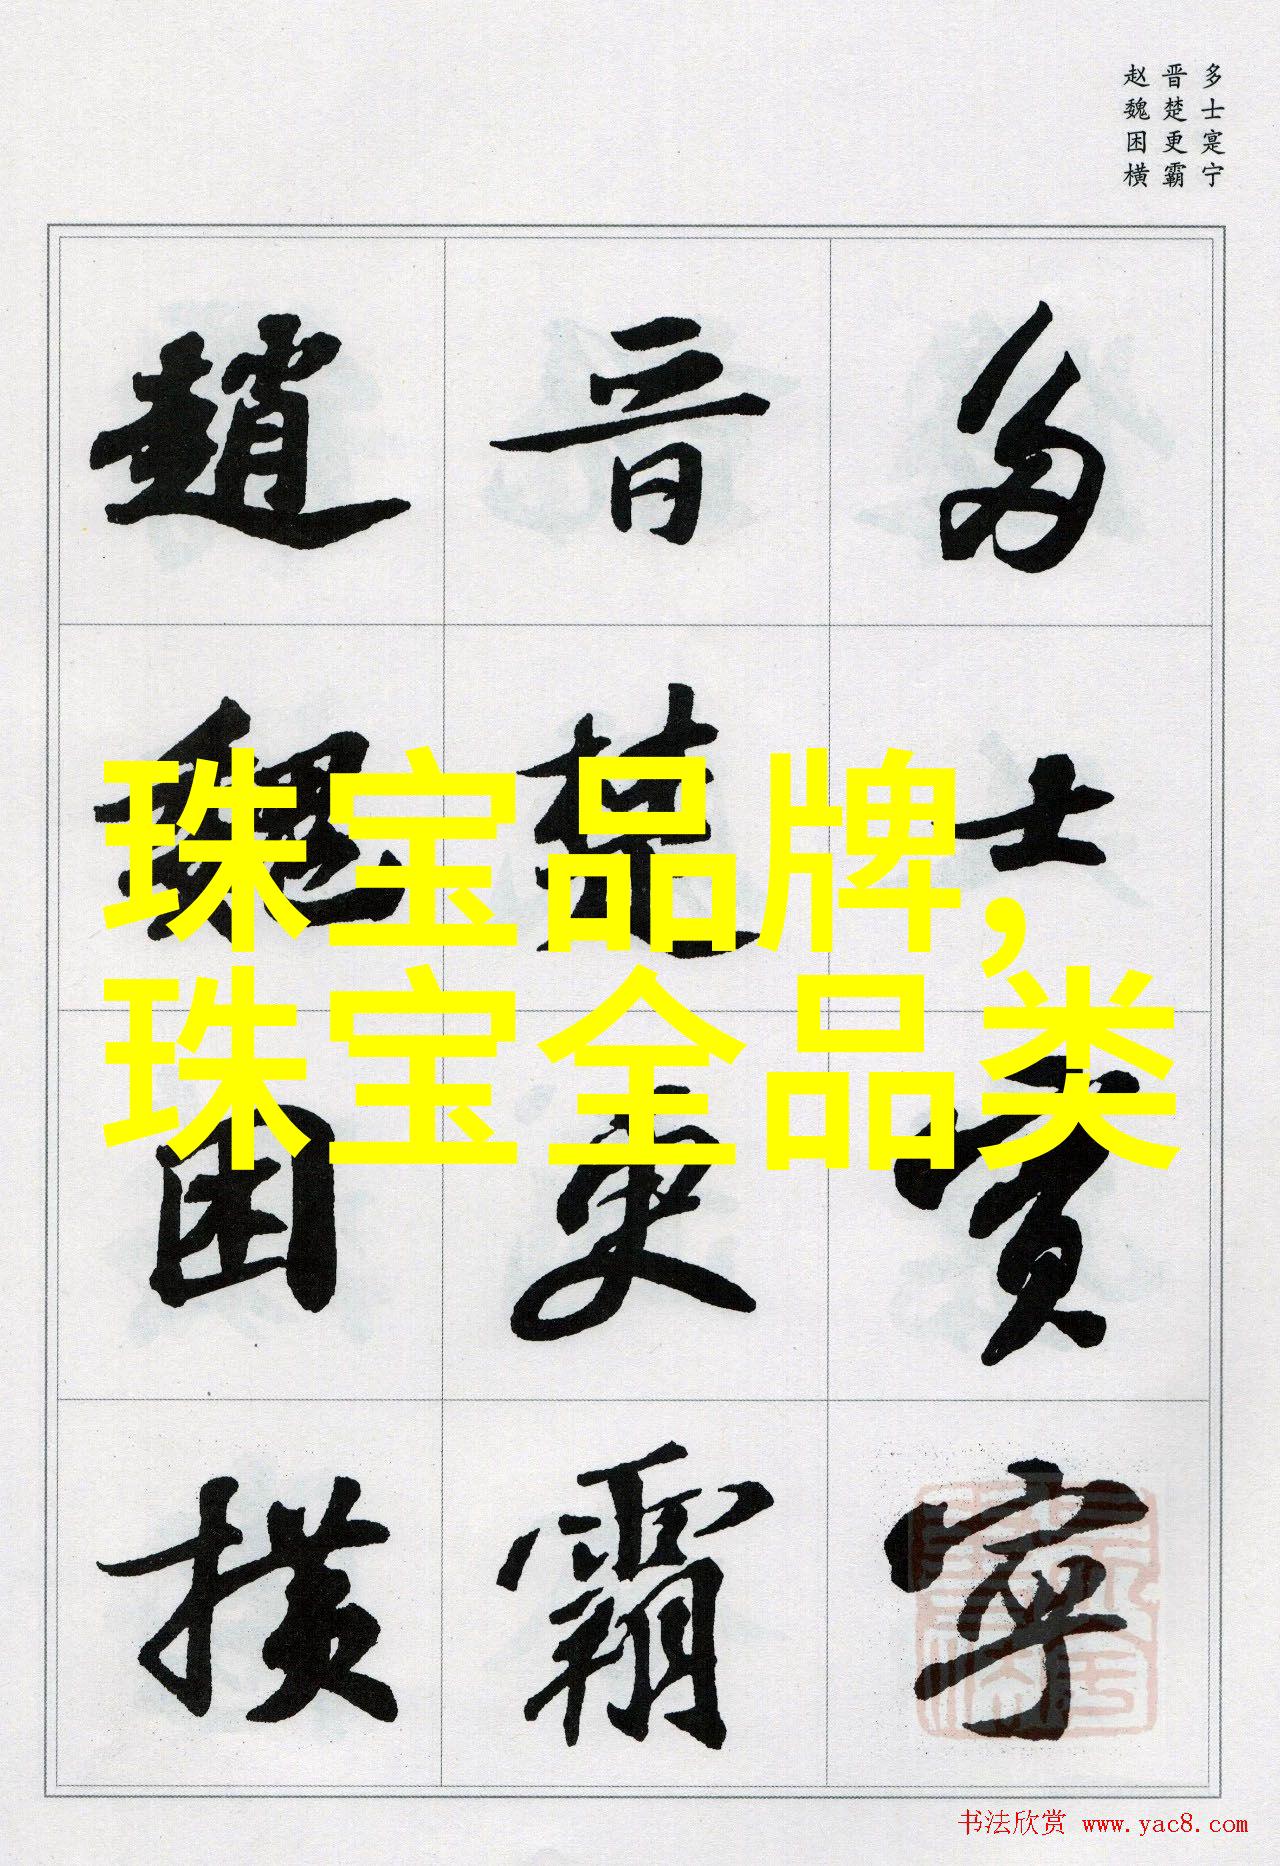 多士寔宁
晋楚更霸
赵魏困横
多士寔宁
晋楚更霸
趙魏困横
珠宝品牌,
珠宝全品类
书法欣赏 www.yac8.com